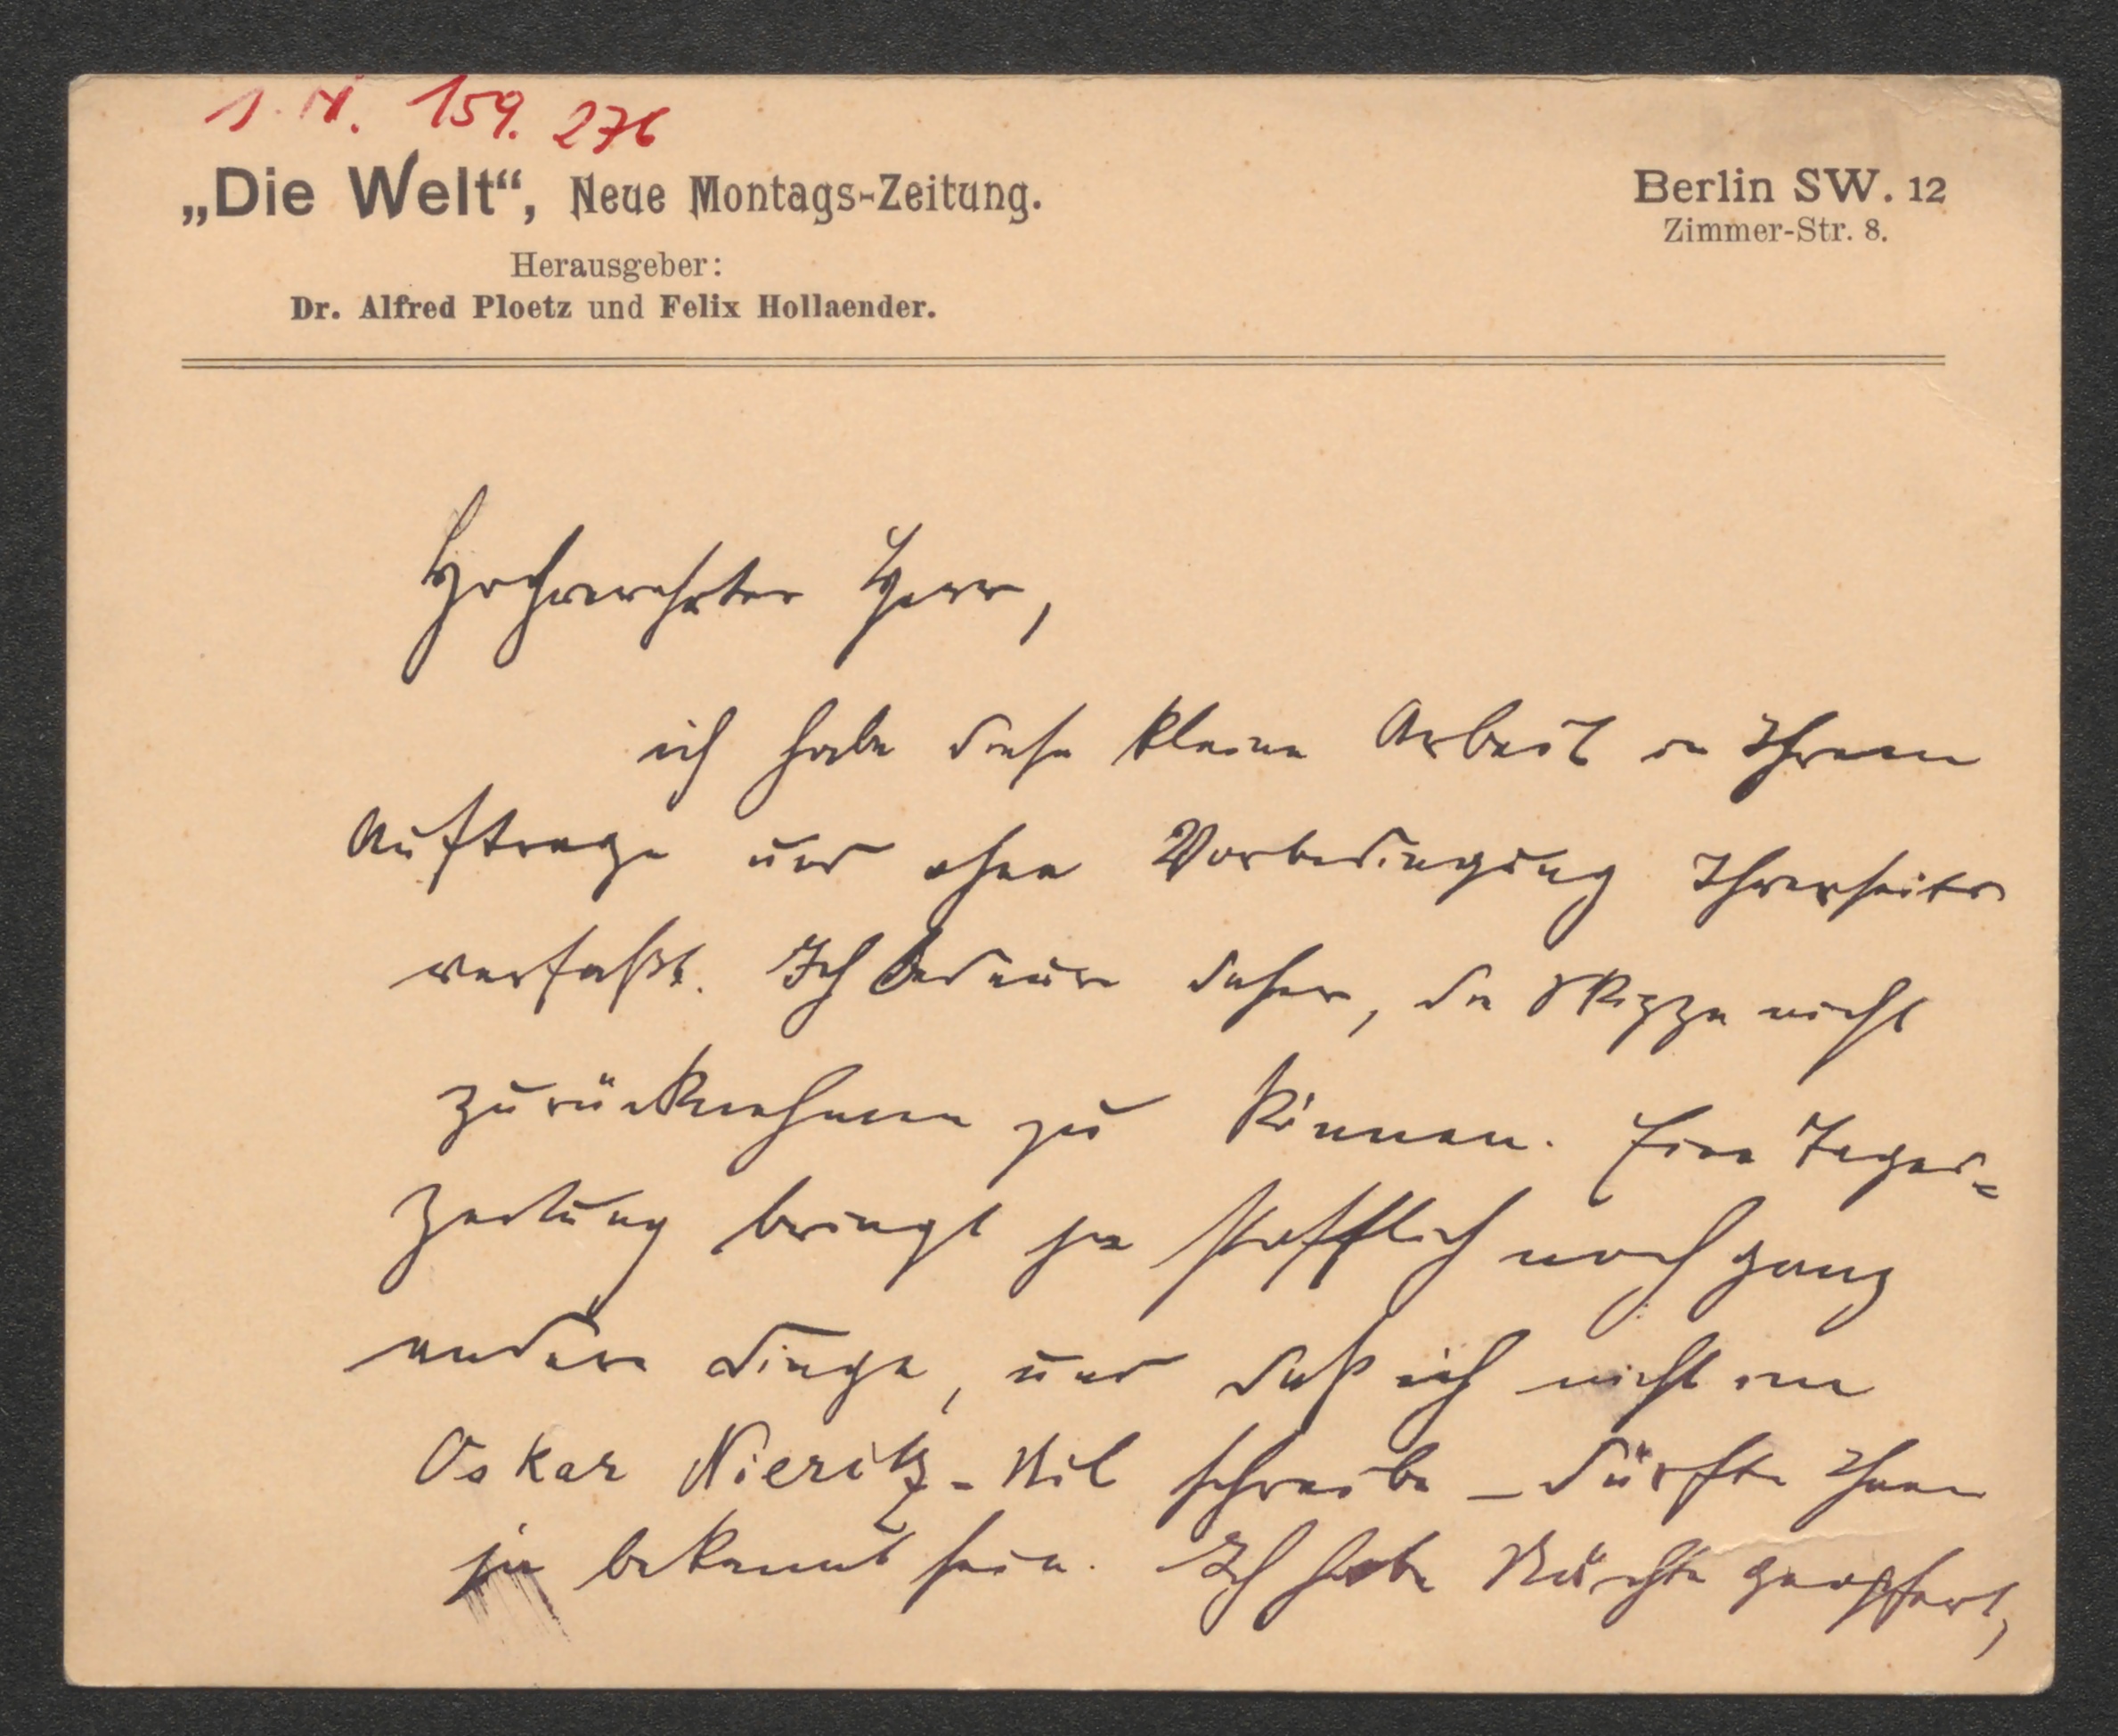 I. N. 159.276
„Die Welt“, Neue Montags-Zeitung.
Herausgeber:
Dr. Alfred Ploetz und Felix Hollaender.
Berlin SW. 12
Zimmer-Str. 8.
Hochverehrter Herr,
ich habe diese kleine Arbeit in Ihrem
Auftrage und ohne Vorbedingung Ihrerseits
verfaßt. Ich bedaure daher, die Skizze nicht
zurücknehmen zu können. Eine Tages=
zeitung bringt ja stofflich noch ganz
andere Dinge, und daß ich nicht im
Oskar Nieritz-Stil schreibe – dürfte Ihnen
ja bekannt sein. Ich habe Nächte geopfert,